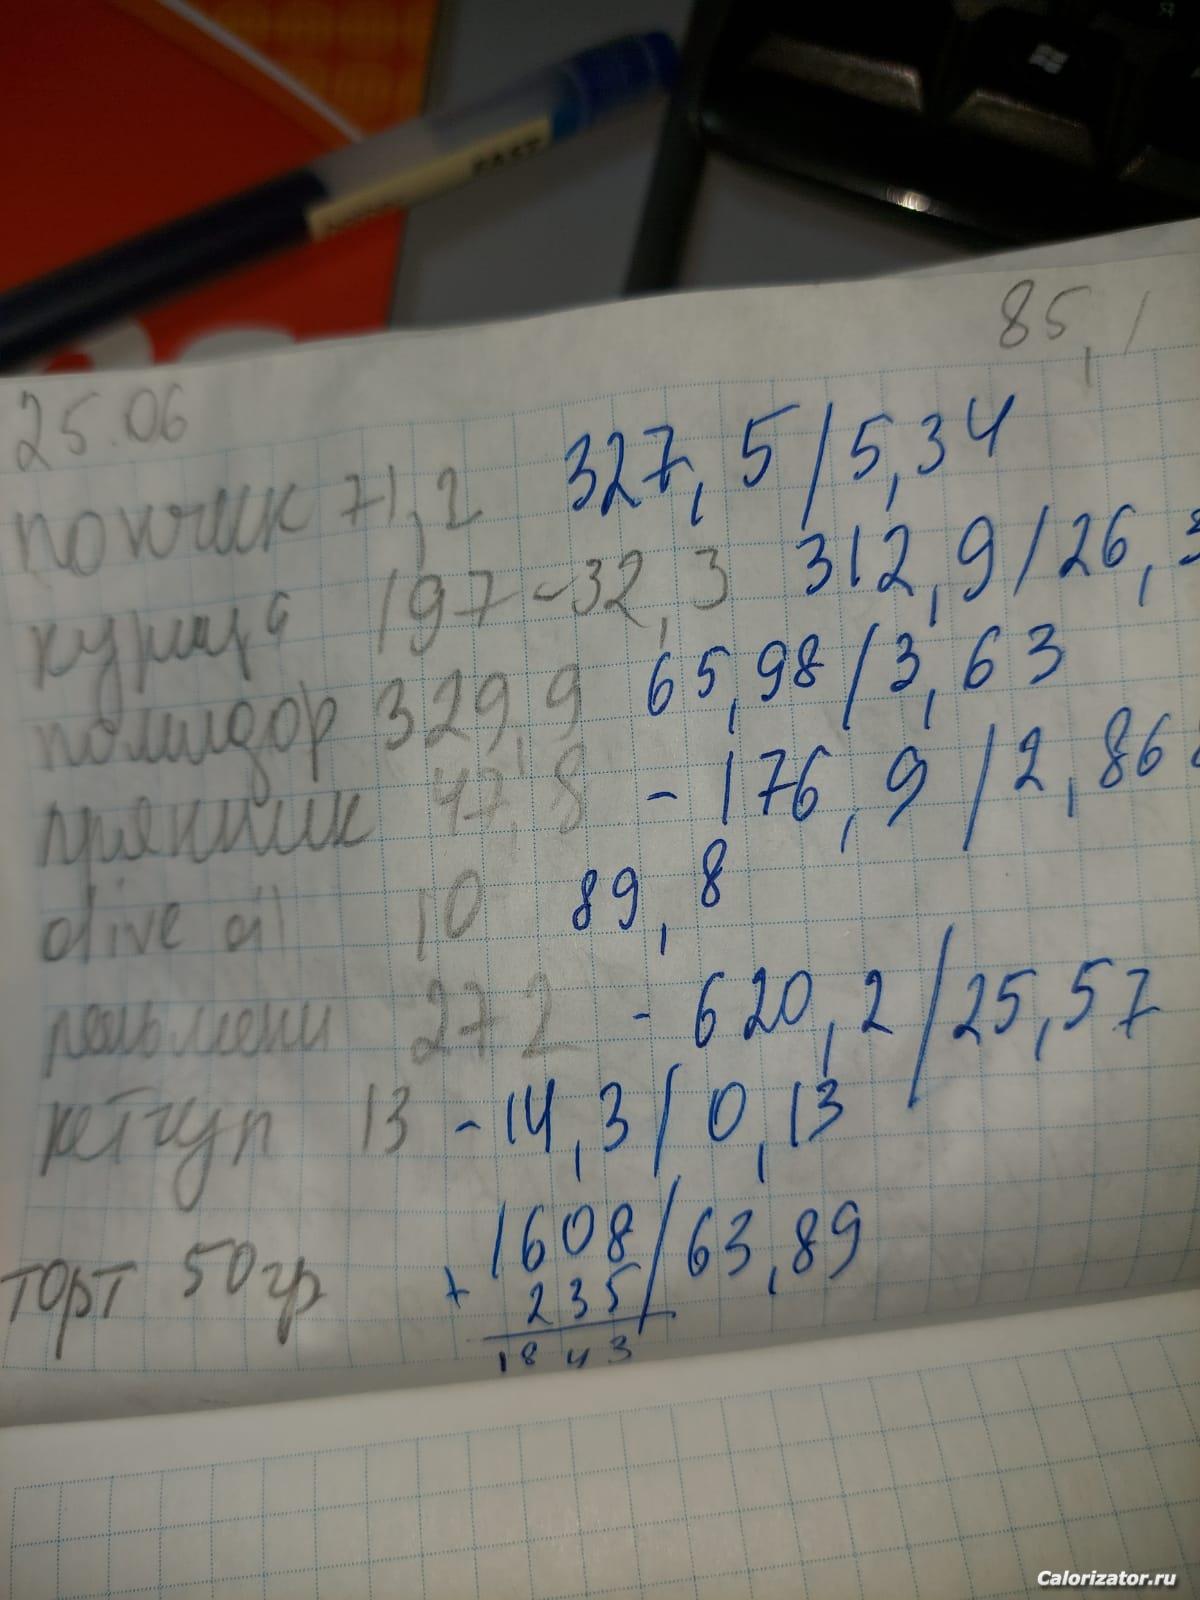 FAST
85,1
25.06
пончик 71,2 327,5/5,34
курица 197-32,3 312,9/26,3
помидор 329,9 65,98/3,63
пряник 47,8 - 176,9/2,868
olive oil 10 89,8
пельмени 272 - 620,2/25,57
кетчуп 13 - 14,3/0,13
1608/63,89
торт 50гр + 235/
1843
Calorizator.ru